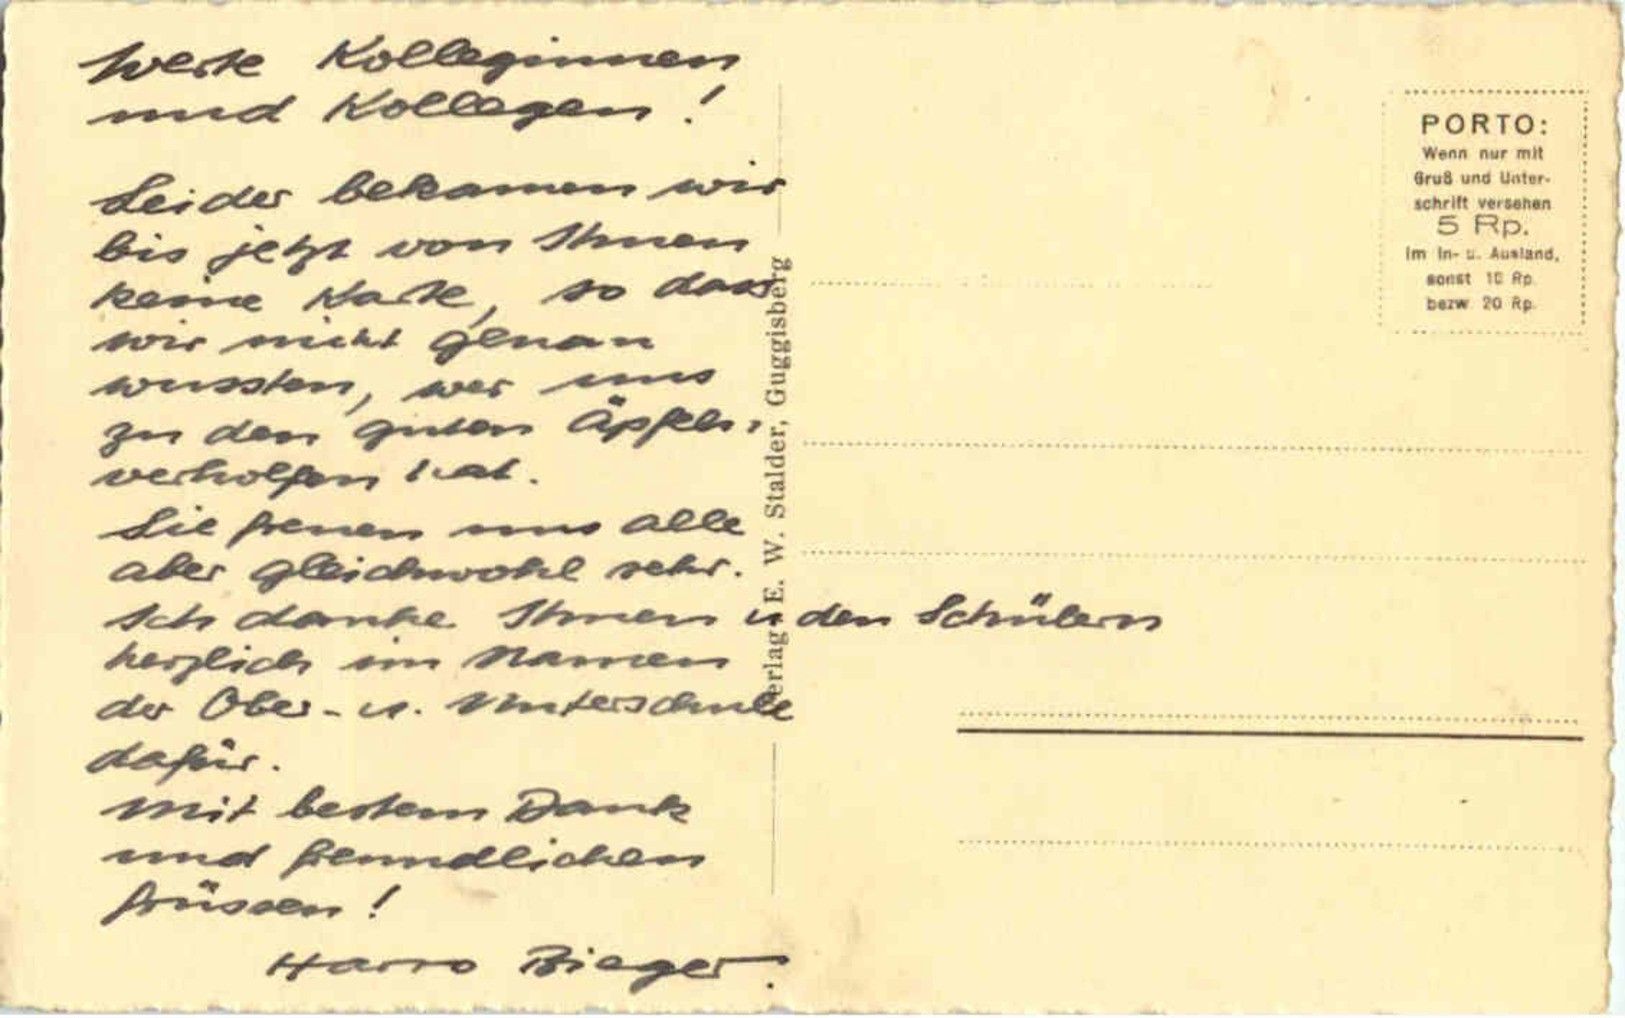 Werte Kolleginnen
und Kollegen!
Leider bekamen wir
bis jetzt von Ihnen
keine Karte, so dass
wir nicht genau
wussten, wer uns
zu den guten Äpfeln
verholfen hat.
Sie freuen uns alle
aber gleichwohl sehr.
Ich danke Ihnen u den Schülern
herzlich im Namen
der Ober- u. Unterschule
dafür.
Mit bestem Dank
und freundlichen
Grüssen!
Harro Bieger
Verlag E. W. Stalder, Guggisberg
PORTO:
Wenn nur mit
Gruß und Unter-
schrift versehen
5 Rp.
im In- u. Ausland,
sonst 10 Rp.
bezw. 20 Rp.